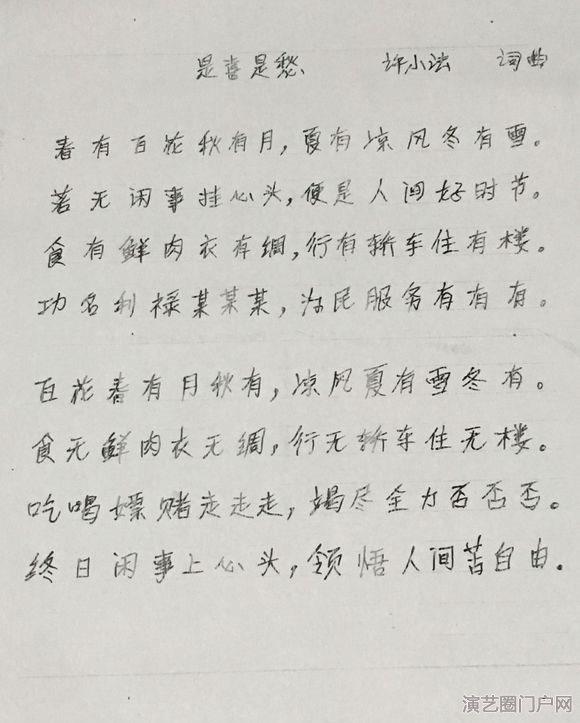 是喜是愁 许小法 词曲
春有百花秋有月,夏有凉风冬有雪。
若无闲事挂心头,便是人间好时节。
食有鲜肉衣有绸,行有轿车住有楼。
功名利禄某某某,为民服务有有有。
百花春有月秋有,凉风夏有雪冬有。
食无鲜肉衣无绸,行无轿车住无楼。
吃喝嫖赌走走走,竭尽全力否否否。
终日闲事上心头,领悟人间苦自由。
演艺圈门户网